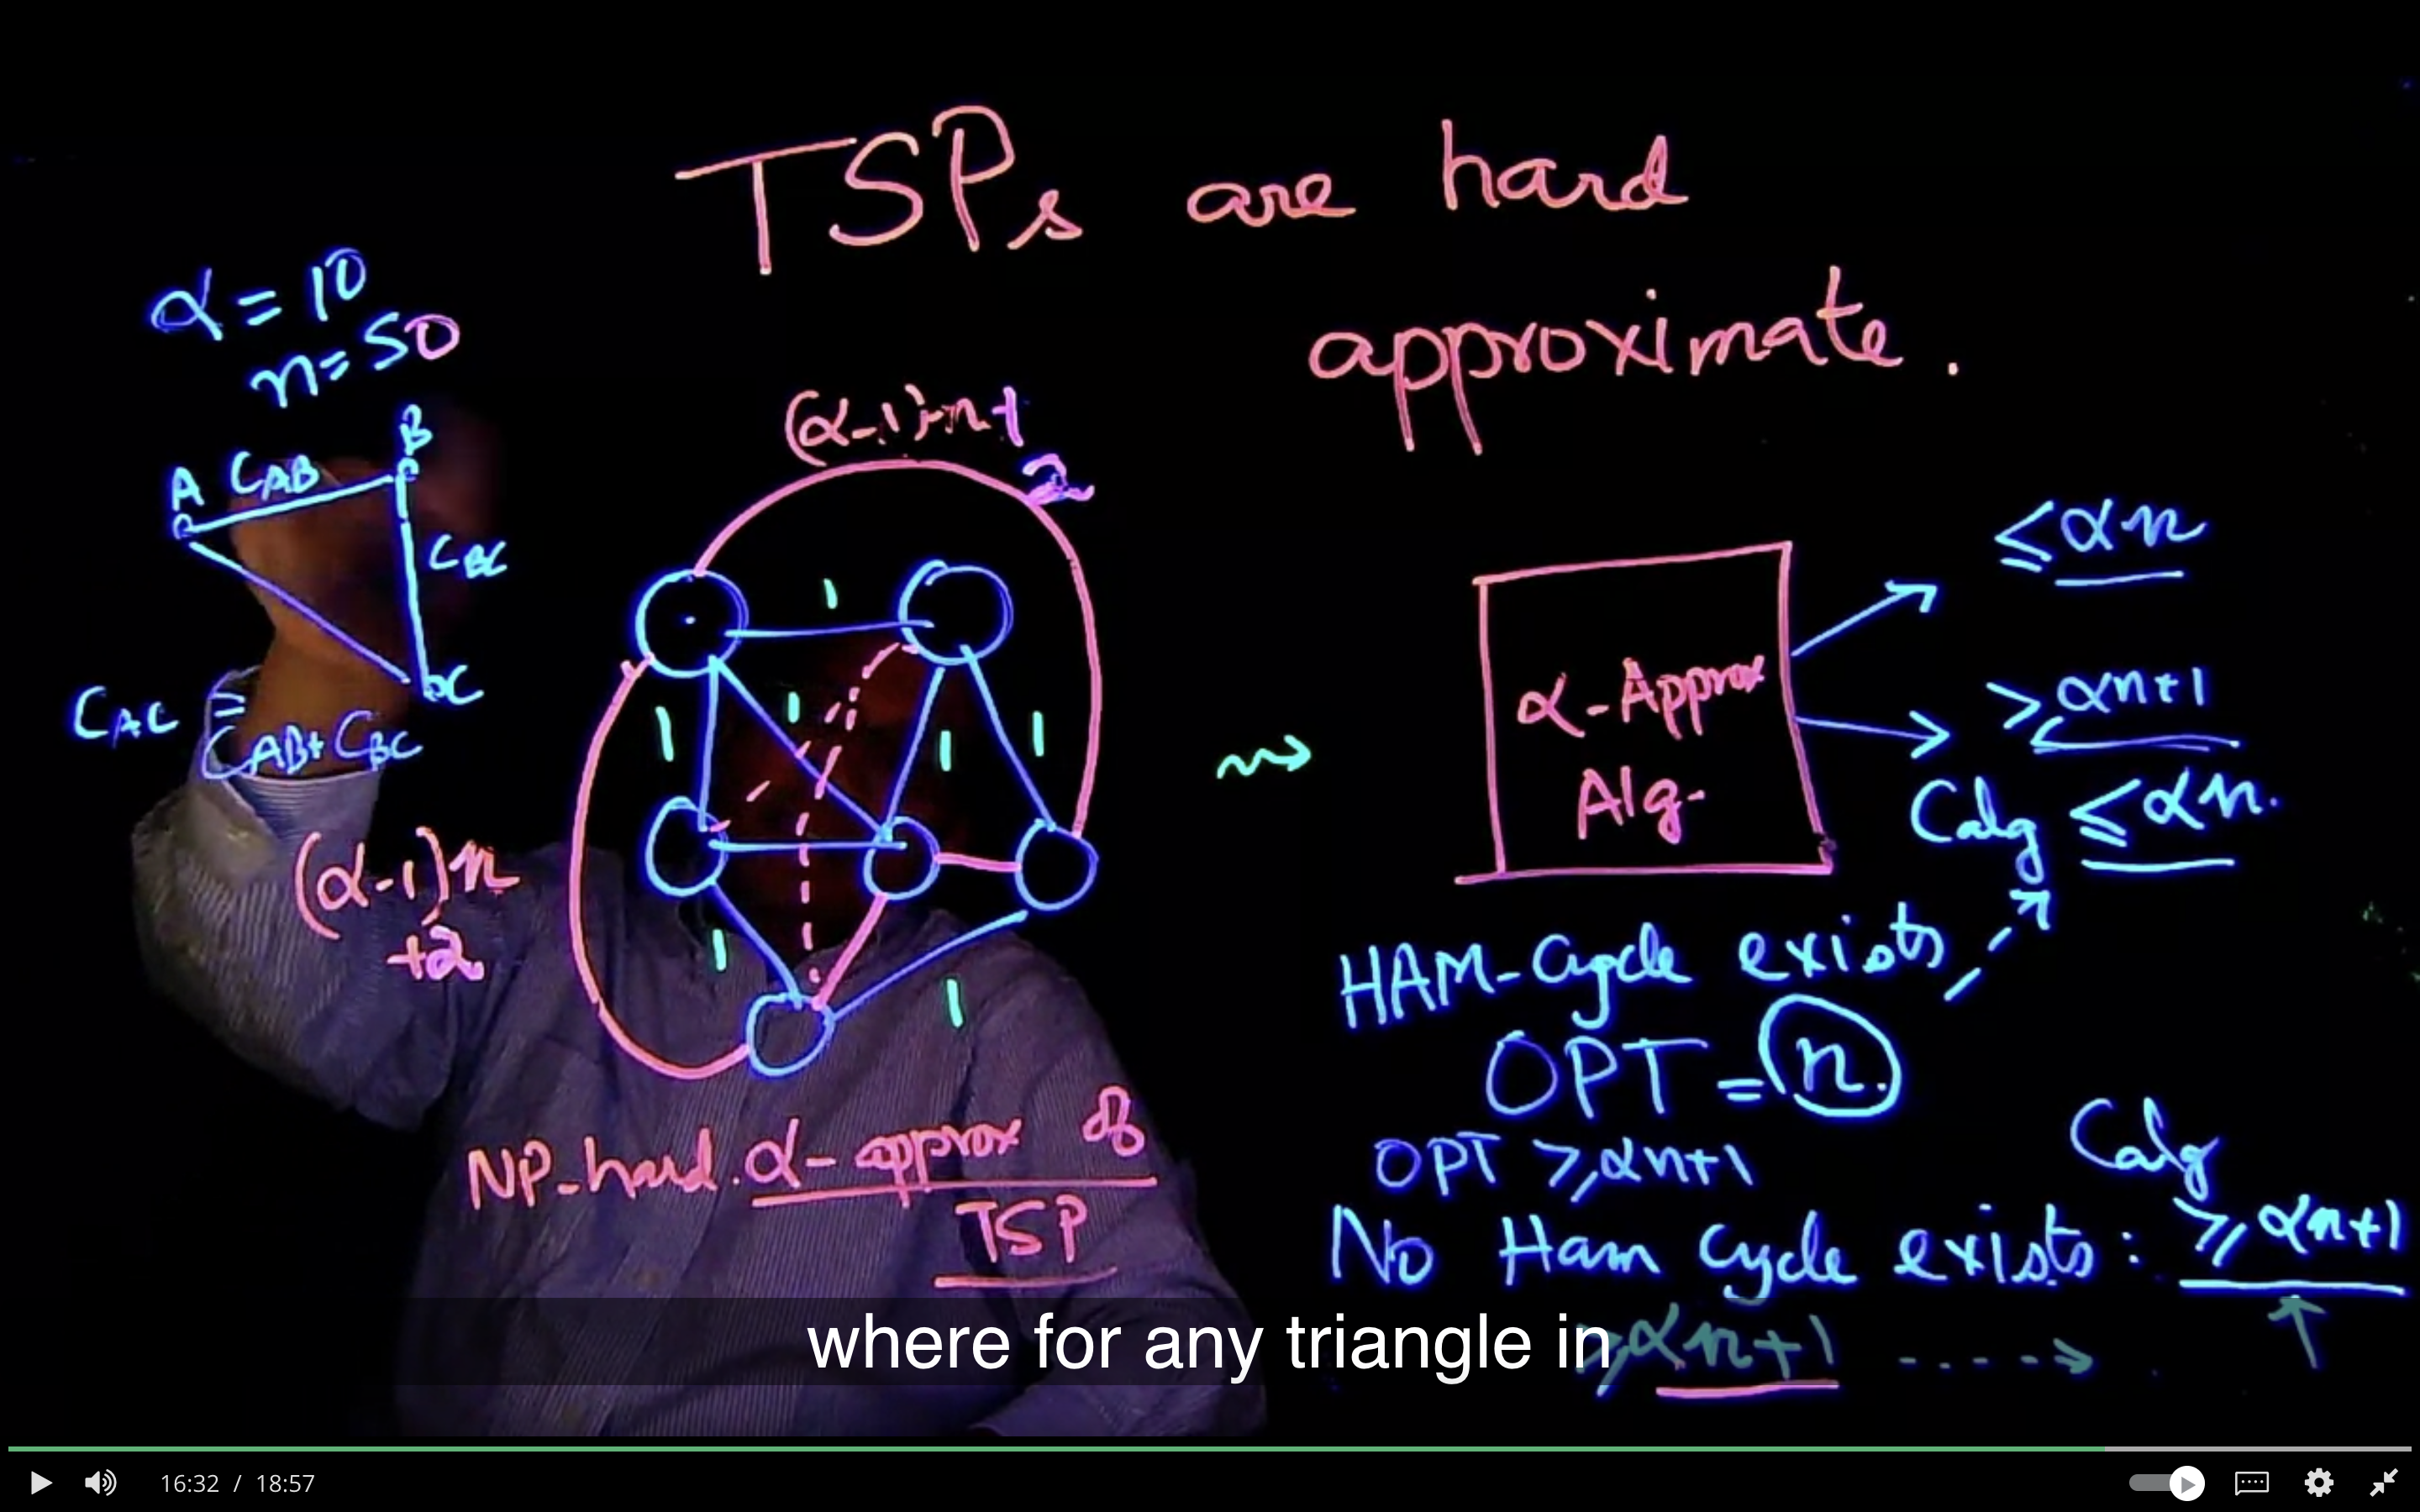 TSPs are hard
approximate.
α = 10
n = 50
A CAB B
CBC
C
CAC ≤
CAB + CBC
(α-1)n+
2
1
1 1 1 1
(α-1)n
+2
1
1
α-Approx
Alg.
≤ αn
≥ αn+1
Calg ≤ αn.
HAM-Cycle exists
OPT = n.
OPT ≥ αn+1
Calg
No Ham Cycle exists: ≥ αn+1
≥ αn+1
NP-hard. α-approx of
TSP
where for any triangle in
16:32 / 18:57